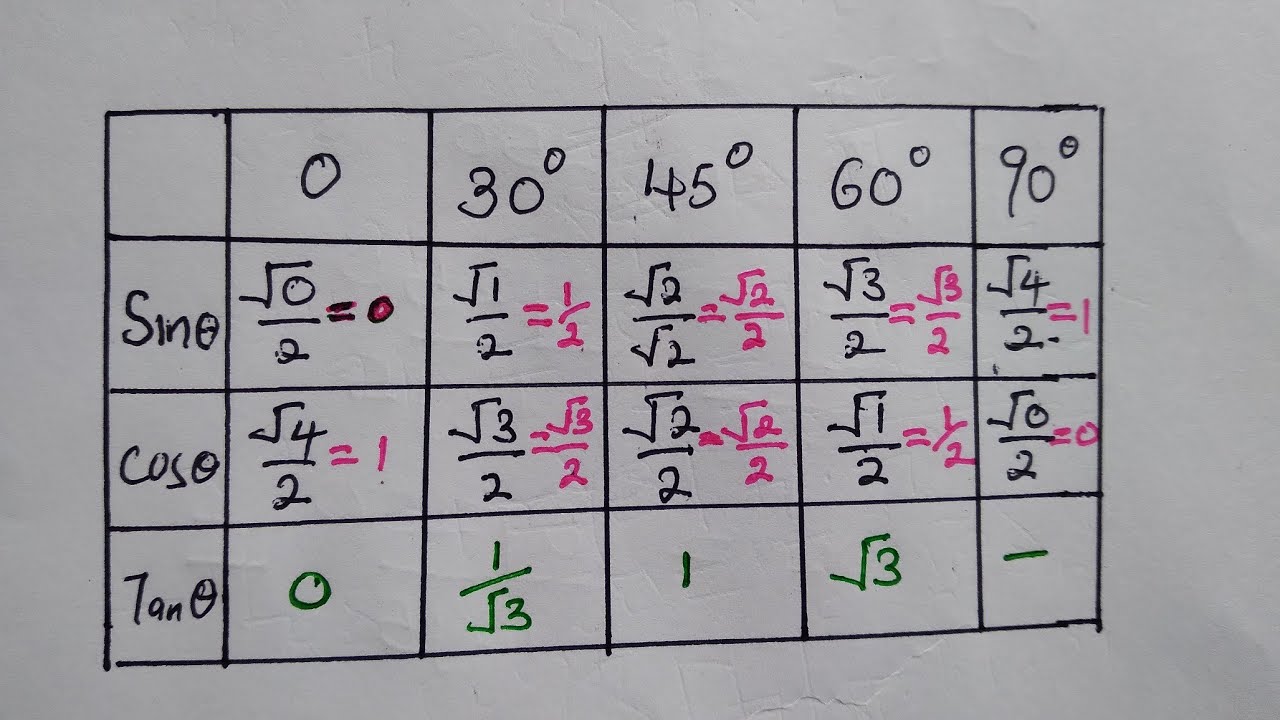 0 30⁰ 45⁰ 60⁰ 90⁰
Sinθ √0/2 = 0 √1/2 = 1/2 √2/√2 = √2/2 √3/2 = √3/2 √4/2 = 1
cosθ √4/2 = 1 √3/2 = √3/2 √2/2 = √2/2 √1/2 = 1/2 √0/2 = 0
Tanθ 0 1/√3 1 √3 –